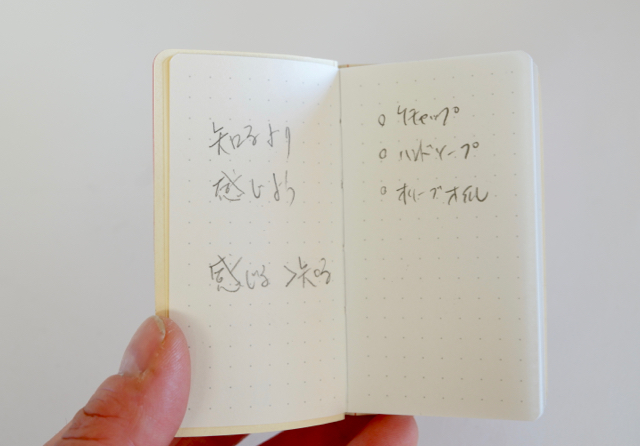 知るより
感じよう
感じる>知る
○ケチャップ
○ハンドソープ
○オリーブオイル